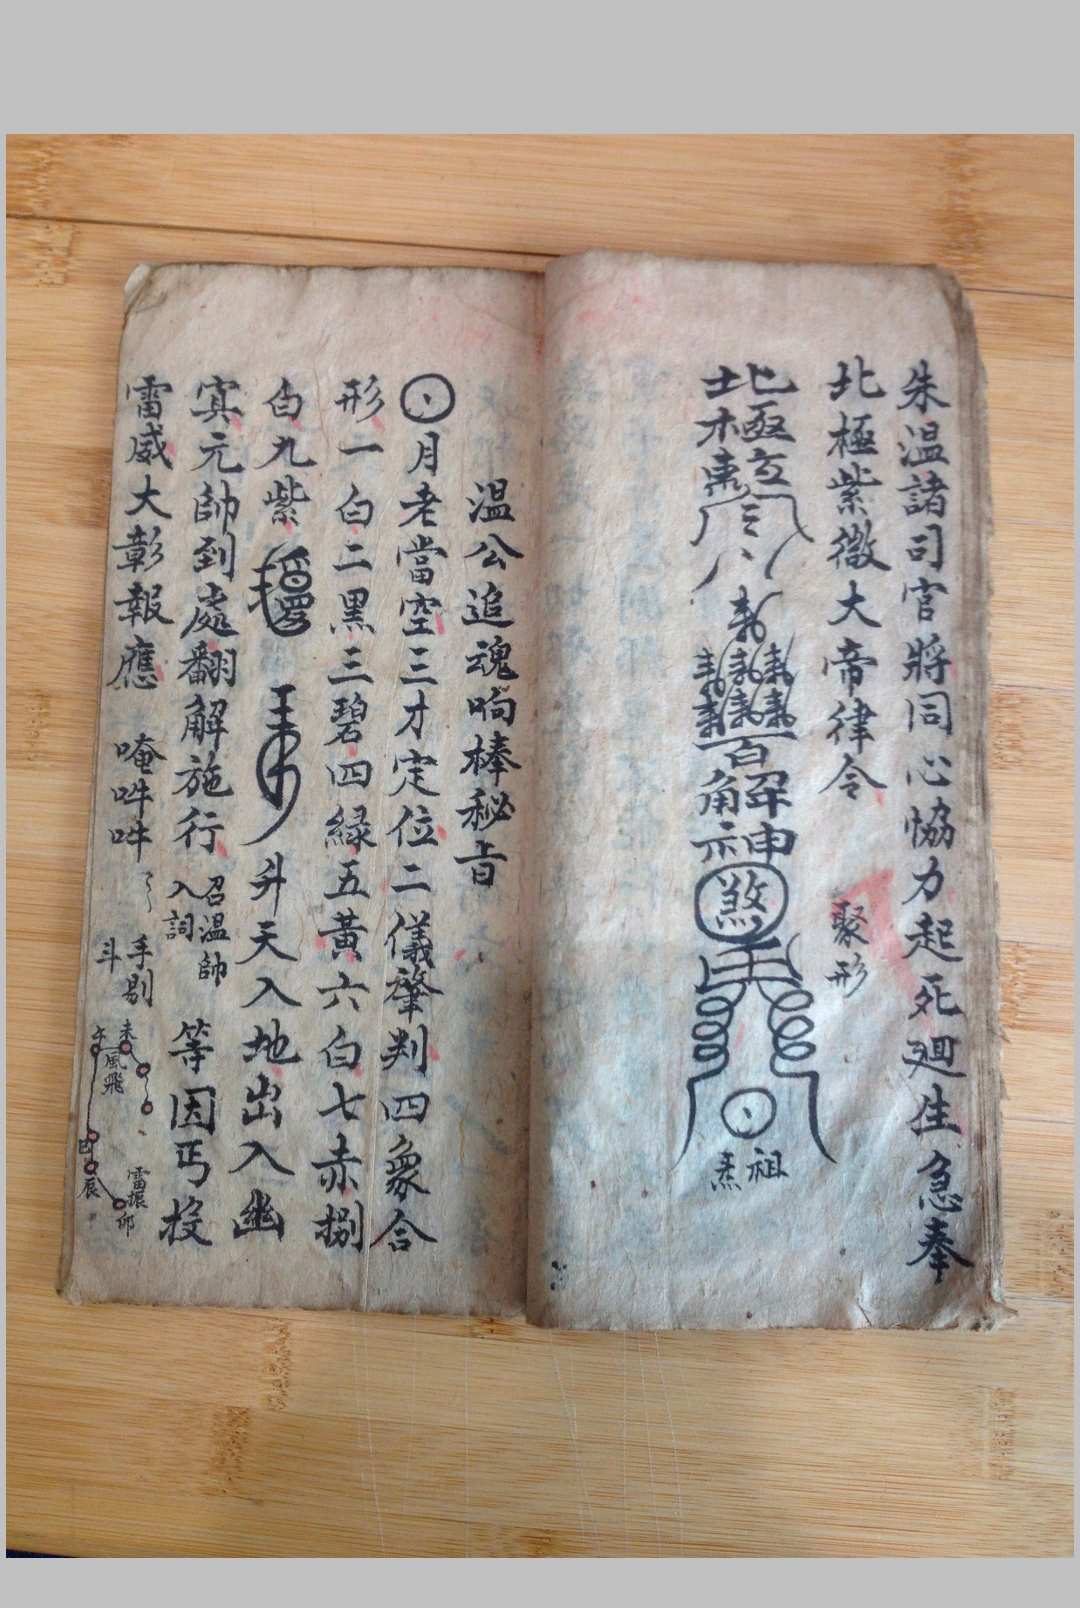 朱温諸司官將同心恊力起死廻生急奉
北極紫微大帝律令
聚形
百解神
煞
祖炁
温公追魂响棒秘旨
月老當空三才定位二儀肇判四象合
形一白二黑三碧四緑五黃六白七赤捌
白九紫
升天入地出入幽
寘元帥到處翻解施行
召温帥
入詞
等因丐投
雷威大彰報應
唵吽吽
手剔
斗
未
午
風飛
辰
雷振
卯